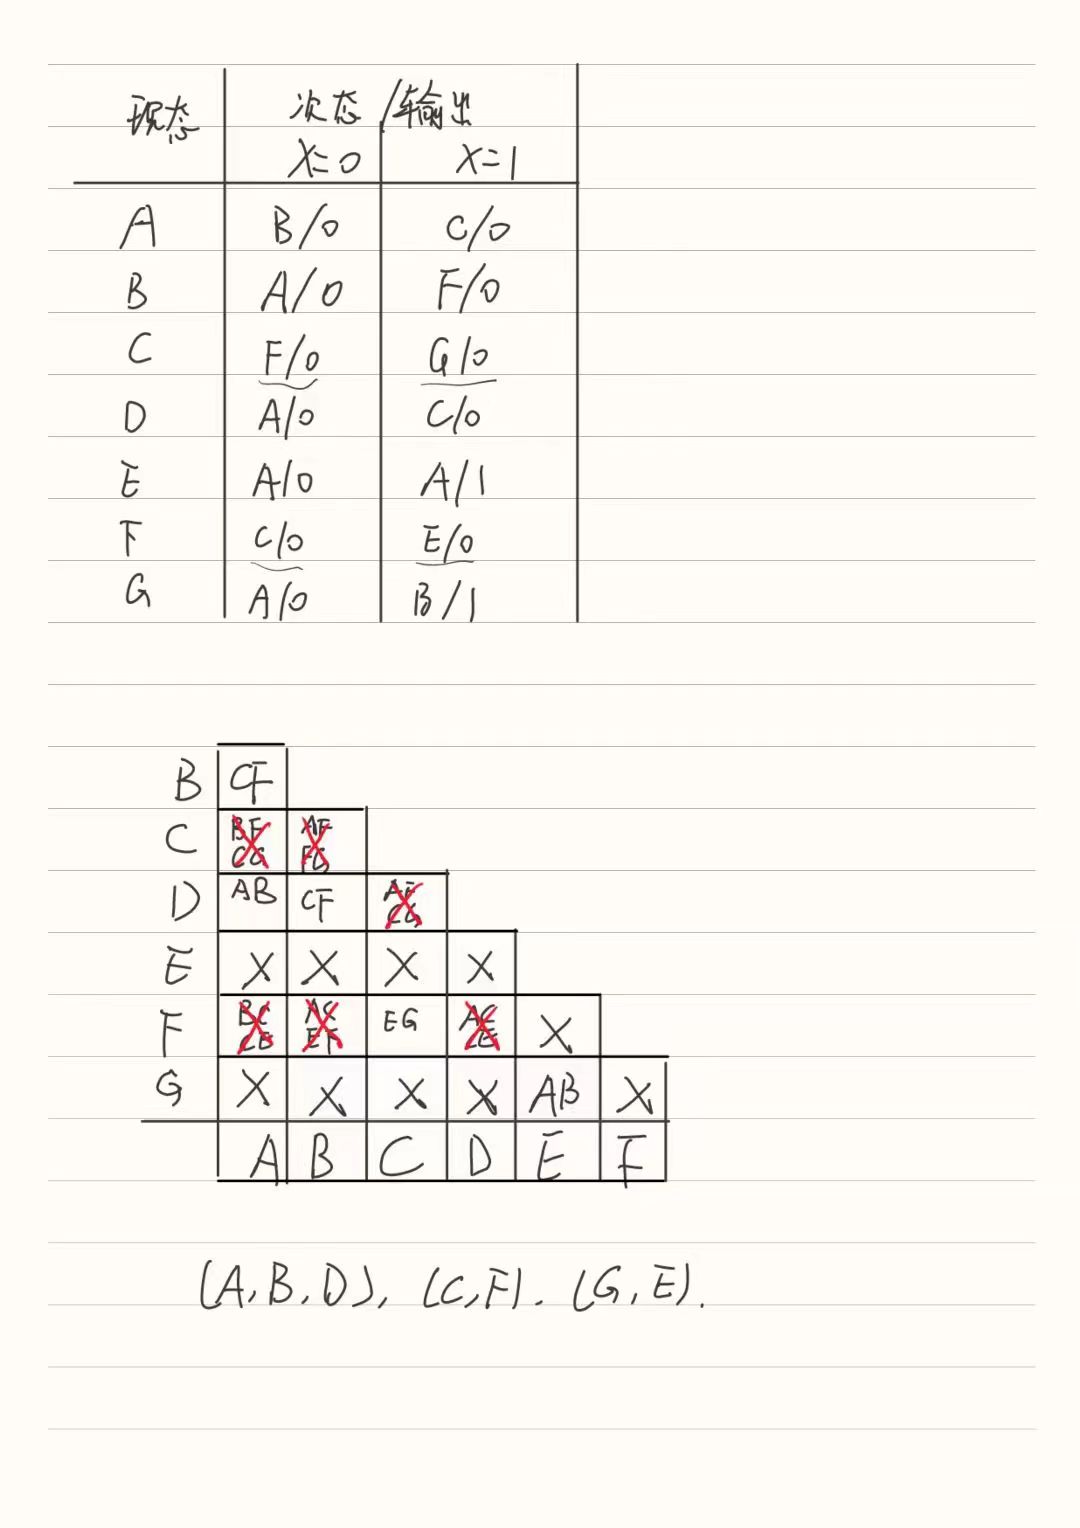 现态 次态/输出
X=0 X=1
A B/0 C/0
B A/0 F/0
C F/0 G/0
D A/0 C/0
E A/0 A/1
F C/0 E/0
G A/0 B/1
B CF
C BF AF
CG FG
D AB CF AF
CG
E X X X X
F BC AC EG AC X
CE EF CE
G X X X X AB X
A B C D E F
(A,B,D), (C,F). (G,E).